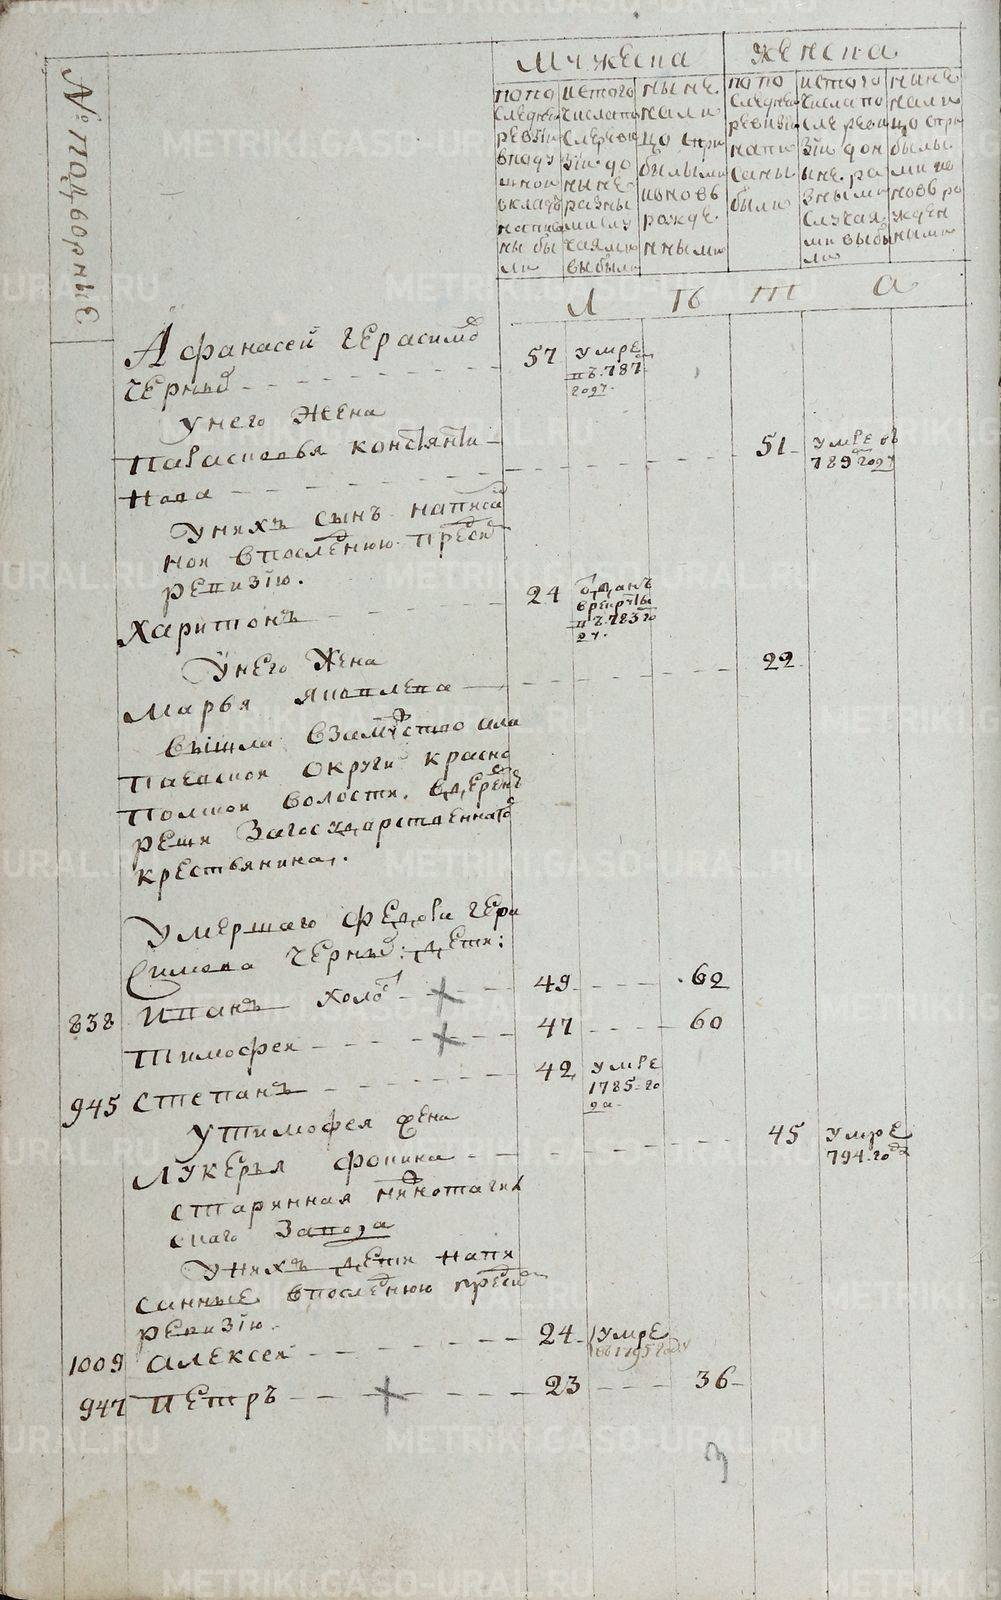 № подворные
Мужеска
женска
по по
следней
ревизии
в поду
шной
окладъ
написа
ны бы
ли
ис того
числа по
сле реви
зіи до
ныне
разны
ми слу
чаями
выбыли
ныне
нали
цо спри
былыми
и новь
рожде
нными
по по
следней
ревизіи
напи
саны
были
ис того
числа по
сле реви
зіи до н
ыне ра
зными
случая
ми выбы
ли
ныне
нали
цо спри
былы
ми и
новоро
жден
ными
Л Ѣ т а
Афанасей герасимо
черныхъ 57 умре
въ 787
году
у него жена
Парасковья констянти
нова 51 умре въ
789 году
у нихъ сынъ написа
ной в последнюю пред
ревизію.
Харитонъ 24 отданъ
в рекруты
въ 783 го
ду.
у него жена 22
Марья яковлева
вышла взамужство
округи красно
полской волости. в дерев
за государственнаго
крестьянина.
умершаго федора гера
симова черныхъ: дети:
838 Иванъ холостъ 49 62
Тимофеи 47 60
945 Степанъ 42 умре
1785 го
да
у Тимофея жена
Лукерья фокина 45 умре
794 года
старинная нижнотагил
скаго завода
у нихъ дети напи
санные в последнюю пред
ревизію.
1009 алексеи 24 умре
въ 1795 году
947 петръ 23 36